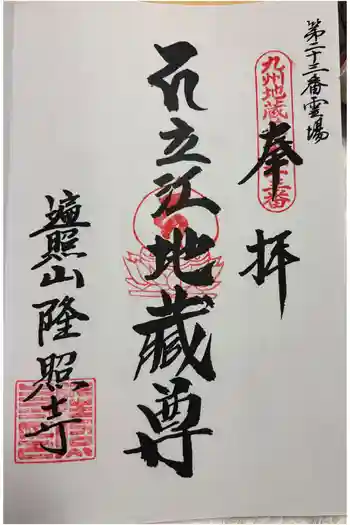 第二十三番霊場
奉拝
九州地蔵
番
立江地蔵尊
遍照山隆照寺